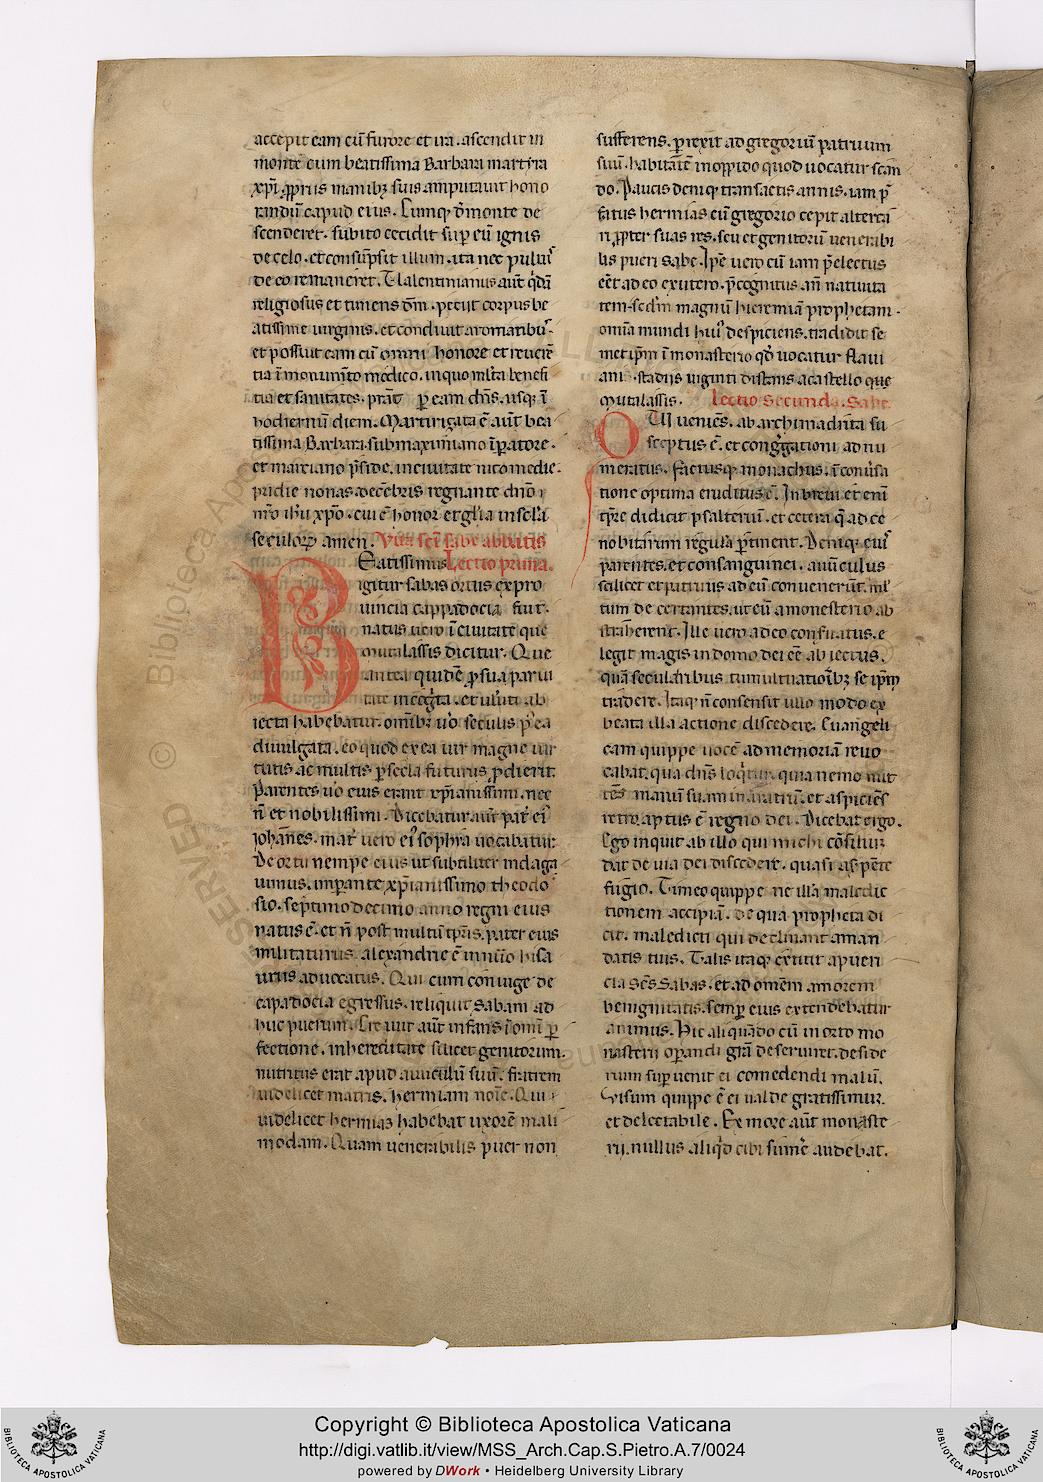 accepit eam cū furore et ira. ascendit in
monte cum beatissima Barbara martyra
xp̄i. ꝓpriis manibꝫ suis amputauit hono
randū capud eius. Cumqꝫ d̄ monte de
scenderet. subito cecidit sup̄ eū ignis
de celo. et consūpsit illum. ita nec puluiˀ
de eo remaneret. Ualentinianus aūt q̇dā
religiosus et timens dm̄. petiit corpus be
atissime uirginis. et condiuit aromatibˀ.
et possuit eam cū omni honore et reuerē
tia ī monumīto modico. in quo ml̄ta benefi
tia et sanitates. p̄rāt ꝑ eam dn̄s. usqꝫ ī
hodiernū diem. Martirizata ē aūt bea
tissima Barbara. sub maximiano īpatore.
et marciano p̄side. in ciuitate nicomedie.
pridie nonas decēbris regnante dn̄o
nr̄o ihū xp̄o. cui ē honor et gl̄ia in scl̄a
seculoꝝ amen. Vita sc̄i sabe abbatis
Beatissimus Lectio prima.
igitur sabas ortus ex pro
uincia cappadocia fuit.
natus uero ī ciuitate que
mutalassis dicitur. Que
antea quidē ꝓ sua parui
tate incoḡta. et uiliti ab
iecta habebatur. omībꝫ uo seculis p̄ ea
diuulgata. eo quod ex ea uir magne uir
tutis ac multis p̄ secla futurus ꝓdierit.
Parentes uo eius erant xp̄ianissimi. nec
n̄ et nobilissimi. Dicebatur aūt pat̄ eiˀ
iohānes. mat̄ uero eiˀ sophya uocabatur.
De ortu nempe eius ut subtiliter indaga
uimus. imperante xp̄ianissimo theodo
sio. septimo decimo anno regni eius
natus ē. et n̄ post multū tp̄ris. pater eius
militaturus. alexandrie ē in initio hisa
uriis aduocatus. Qui cum coniuge de
capadocia egressus. reliquit Sabam ad
huc puerum. Cre uit aūt infans ī omī ꝑ
fectione. in hereditate scilicet genitorum.
nutritus erat apud auūculū suū. fratrem
uidelicet matris. hermiam noīe. Qui
uidelicet hermias habebat uxorē mali
modam. Quam uenerabilis puer non
sufferens. ꝑrexit ad gregoriū patruum
suū. habitātē in oppido quod uocatur scan
do. Paucis deniqꝫ transactis annis. iam p̄
fatus hermias cū gregorio cepit altercā
ri ꝓpter suas res. seu et genitoriū uenerabi
lis pueri Sabe. Ip̄e uero cū iam p̄electus
eēt a deo ex utero. p̄cognitus añ natiuita
tem. scd̄m magnū hieremiā prophetam.
omīa mundi huiˀ despiciens. tradidit se
met ip̄m ī monasterio qd̄ uocatur flaui
ani. stadiis uiginti distans a castello que
mutalassis. Lectio secunda. Sabe.
QUI ueniēs. ab archimadrita su
sceptus ē. et congḡationi adnu
meratus. factusqꝫ monachus. ī conu̓sa
tione optima eruditus ē. In breui et enī
tp̄re didicit psalteriū. et cetera q̄ ad ce
nobitarum regula ꝑtinent. Deniqꝫ eiuˀ
parentes. et consanguinei. auūculus
scilicet et patruus ad eū conuenerūt. ml̄
tum de certantes. ut eū a monesterio ab
straherent. Ille uero a deo conseruatus. e
legit magis in domo dei eē abiectus.
quā secularibus tumultuatiōībꝫ se ip̄m
tradere. Itaqꝫ n̄ consensit ullo modo ex
beata illa actione discedere. Euangeli
cam quippe uocē ad memoriā reuo
cabat. qua dn̄s loq̄tur. quia nemo mit
tēs manū suam in aratrū. et aspiciēs
retro. aptus ē regno dei. Dicebat ergo.
Ego inquit ab illo qui michi cōsiliur
dat de uia dei discedere. quasi aspēte
fugio. Timeo quippe ne illa maledic
tionem accipiā. de qua propheta di
cit. maledicti qui declinant a man
datis tuis. Talis itaqꝫ extitit a pueri
cia sēs Sabas. et ad omēm amorem
benignitatis. semꝑ eius extendebatur
animus. Hic aliquādo cū in orto mo
nasterii oꝑandi grā̄ deseruiret. deside
rium sup̄uenit ei comedendi malū.
Uisum quippe ē ei ualde gratissimum.
et delectabile. Ex more aūt monaste
rii. nullus aliq̇d cibi sumē audebat.
Copyright © Biblioteca Apostolica Vaticana
http://digi.vatlib.it/view/MSS_Arch.Cap.S.Pietro.A.7/0024
powered by DWork • Heidelberg University Library